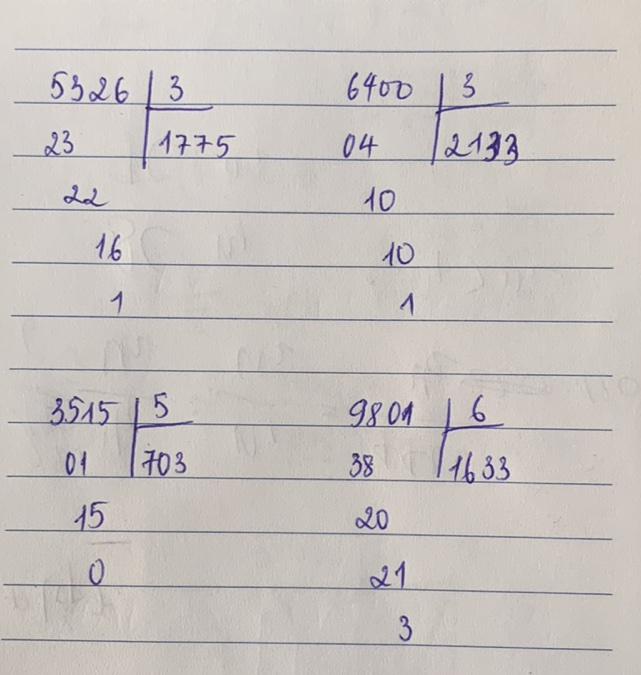 5326 3
23 1775
22
16
1
6400 3
04 2133
10
10
1
3515 5
01 703
15
0
9801 6
38 1633
20
21
3